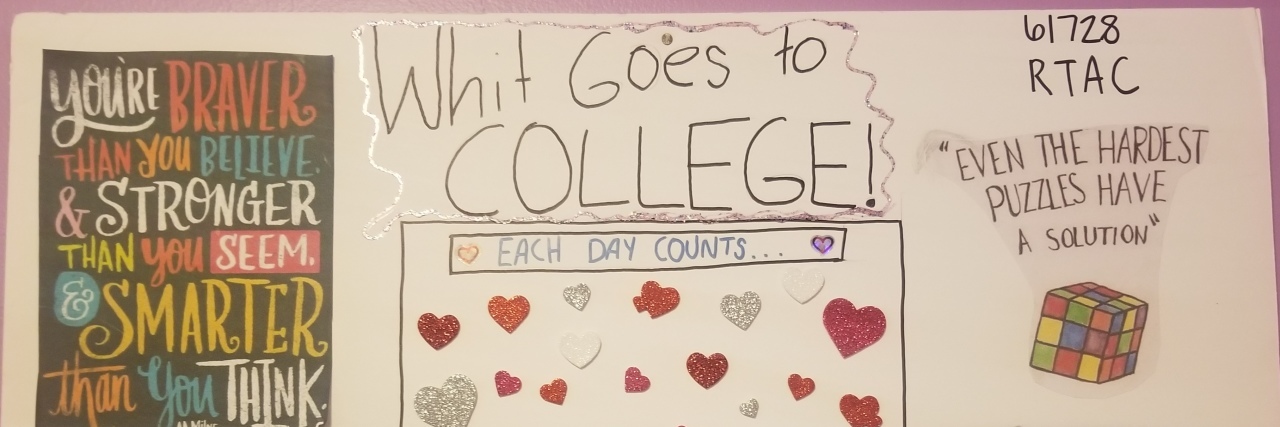 YOU'RE BRAVER
THAN YOU BELIEVE,
& STRONGER
THAN YOU SEEM,
& SMARTER
than You THINK.
Whit Goes to
COLLEGE!
EACH DAY COUNTS...
61728
RTAC
"EVEN THE HARDEST
PUZZLES HAVE
A SOLUTION"